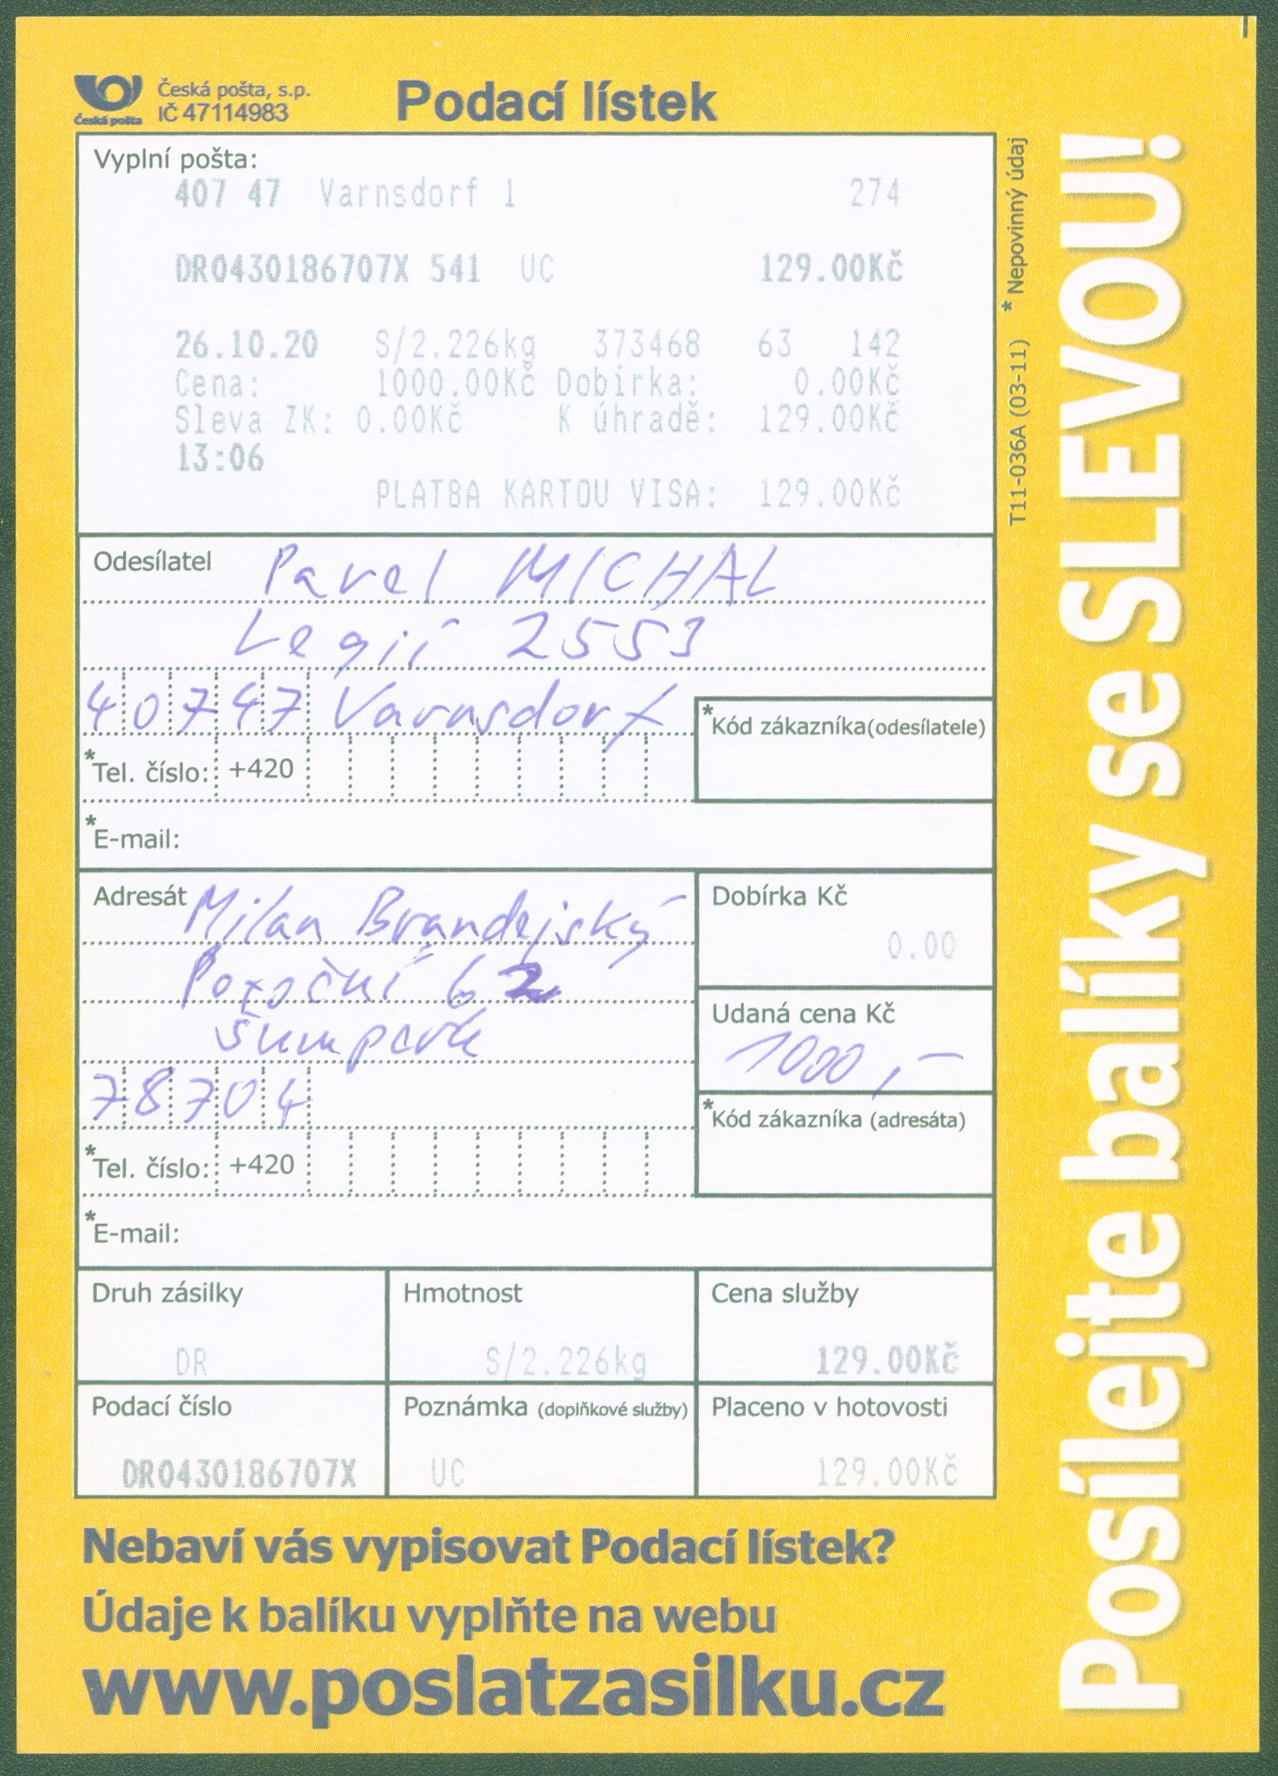 Česká pošta, s.p.
IČ 47114983
Česká pošta
Podací lístek
Vyplní pošta:
407 47 Varnsdorf 1 274
DR0430186707X 541 UC 129.00Kč
26.10.20 S/2.226kg 373468 63 142
Cena: 1000.00Kč Dobírka: 0.00Kč
Sleva ZK: 0.00Kč K úhradě: 129.00Kč
13:06
PLATBA KARTOU VISA: 129.00Kč
* Nepovinný údaj
T11-036A (03-11)
Odesílatel Pavel MICHAL
Legií 2553
40747 Varnsdorf
*Kód zákazníka(odesílatele)
*Tel. číslo: +420
*E-mail:
Adresát Milan Brandejský
62
Šumperk
78704
Dobírka Kč
0.00
Udaná cena Kč
1000,-
*Kód zákazníka (adresáta)
*Tel. číslo: +420
*E-mail:
Druh zásilky Hmotnost Cena služby
DR S/2.226kg 129.00Kč
Podací číslo Poznámka (doplňkové služby) Placeno v hotovosti
DR0430186707X UC 129.00Kč
Nebaví vás vypisovat Podací lístek?
Údaje k balíku vyplňte na webu
www.poslatzasilku.cz
Posílejte balíky se SLEVOU!